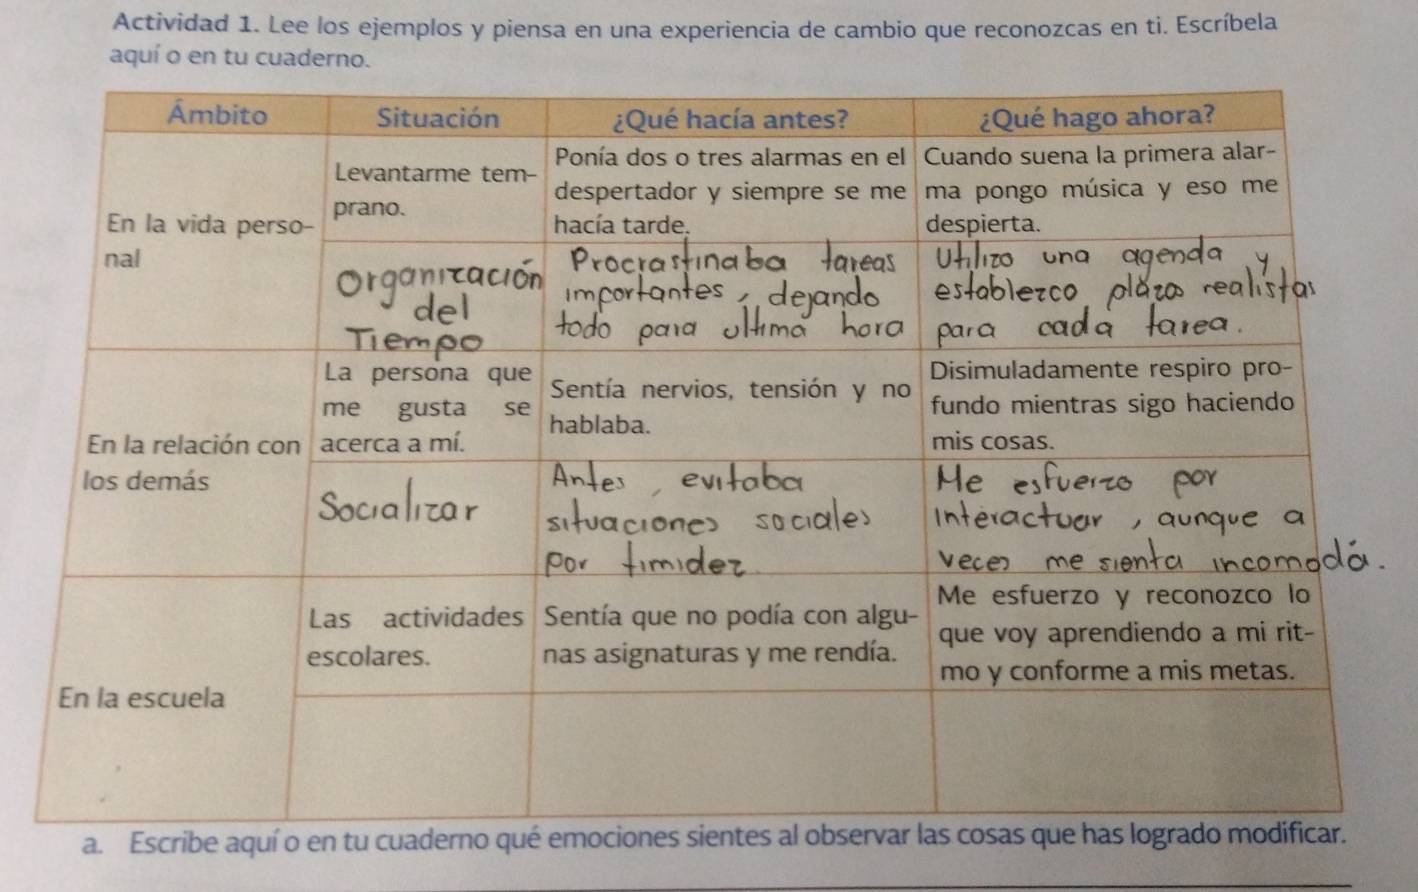 Actividad 1. Lee los ejemplos y piensa en una experiencia de cambio que reconozcas en ti. Escríbela
aquí o en tu cuaderno.
Ámbito
Situación
¿Qué hacía antes?
¿Qué hago ahora?
En la vida perso-
nal
Levantarme tem-
prano.
Ponía dos o tres alarmas en el
despertador y siempre se me
hacía tarde.
Cuando suena la primera alar-
ma pongo música y eso me
despierta.
Organización
del
Tiempo
Procrastinaba tareas
importantes, dejando
todo para última hora
Utilizo una agenda y
establezco plazos realistas
para cada tarea.
En la relación con
los demás
La persona que
me gusta se
acerca a mí.
Sentía nervios, tensión y no
hablaba.
Disimuladamente respiro pro-
fundo mientras sigo haciendo
mis cosas.
Socializar
Antes, evitaba
situaciones sociales
por timidez.
Me esfuerzo por
interactuar, aunque a
veces me sienta incomoda.
En la escuela
Las actividades
escolares.
Sentía que no podía con algu-
nas asignaturas y me rendía.
Me esfuerzo y reconozco lo
que voy aprendiendo a mi rit-
mo y conforme a mis metas.
a. Escribe aquí o en tu cuaderno qué emociones sientes al observar las cosas que has logrado modificar.